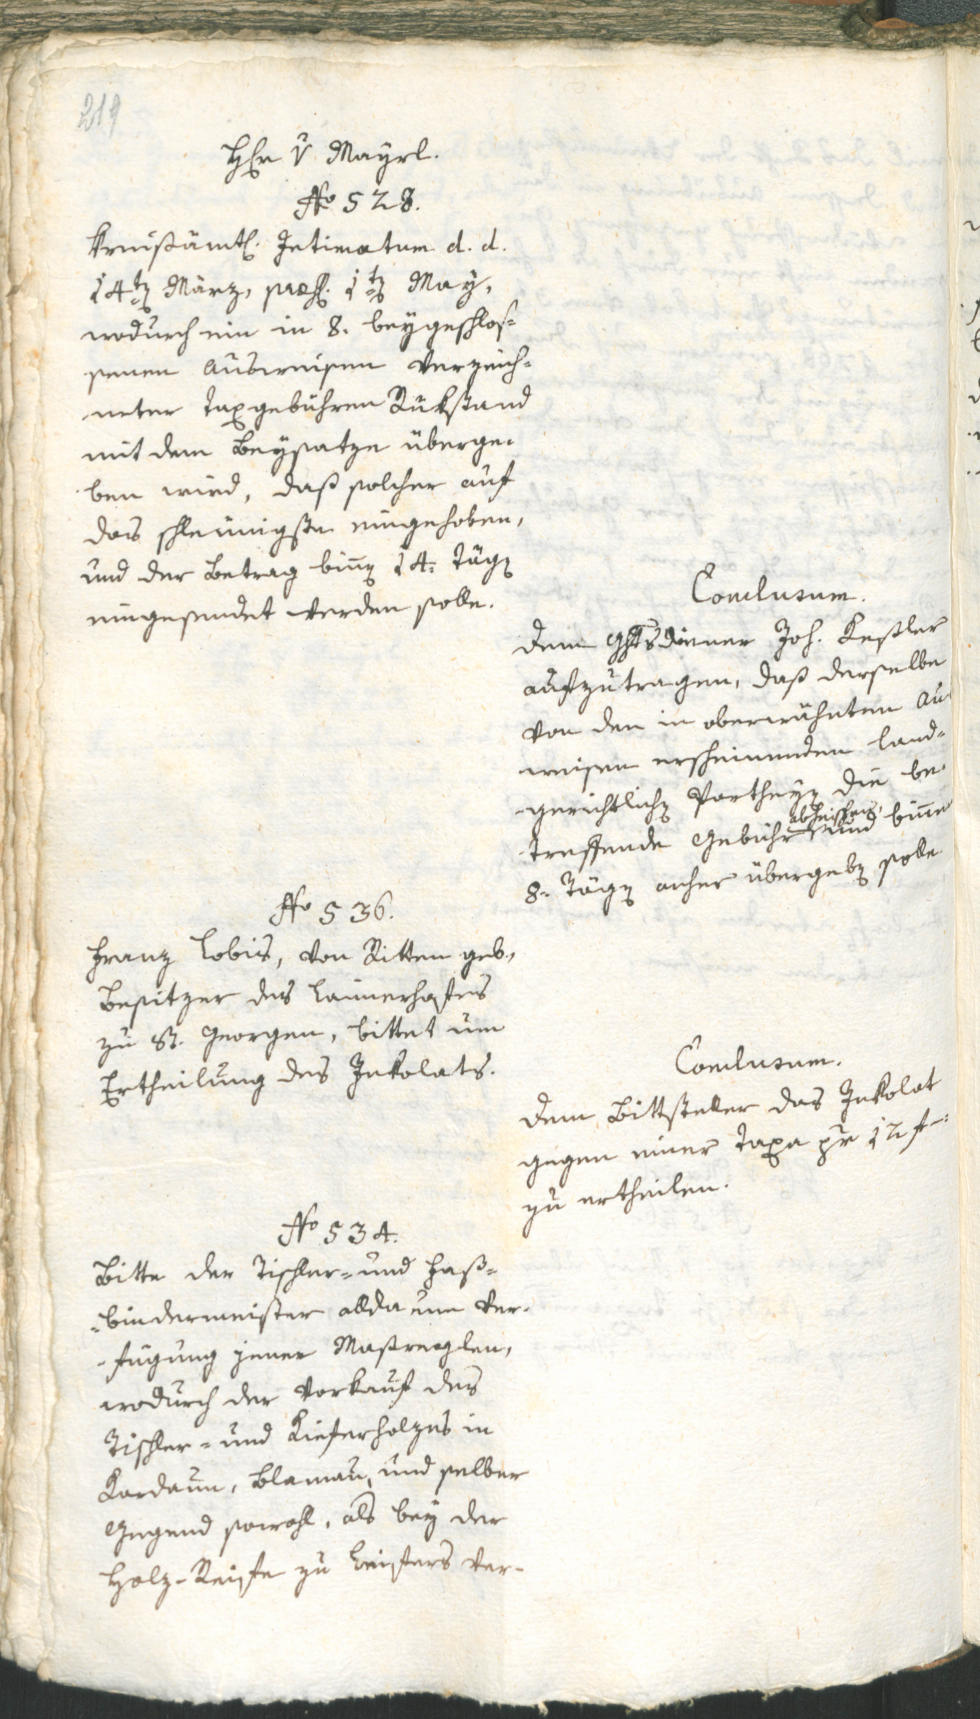 219
Hr v Mayrl.
No 528.
Kreisämtl. Intimatum d. d.
14tn März, praes. 1tn May,
wodurch ein in 8. beygeschlos=
senen Ausweisen verzeich=
neter Taxgebühren Rükstand
mit dem Beysatze überge=
ben wird, daß solcher auf
das schleunigste eingehoben,
und der Betrag binn 14. Tägen
eingesendet werden solle.
Conclusum.
Dem Ghtsdiener Joh. Keßler
aufzutragen, daß derselbe
von den in oberwähnten Aus
weisen erscheinenden land=
gerichtlichen Partheyen die be=
treffende Gebühr abheischen, und binne
8. Tägen anher übergeben solle
No 536.
Franz Lobis, von Ritten geb.,
Besitzer des Lannerhofes
zu St. Georgen, bittet um
Ertheilung des Inkolats.
Conclusum.
Dem Bittsteller das Inkolat
gegen einer Taxa pr 12 f –:
zu ertheilen.
No 534.
Bitte der Tischler= und Faß=
=bindermeister allda um Ver=
=fügung jener Maßreglen,
wodurch der Vorkauf des
Tischler= und Kieferholzes in
Kardaun, Blumau, und selber
Gegend sowohl, als bey der
Holz=Reife zu Leifers ver=